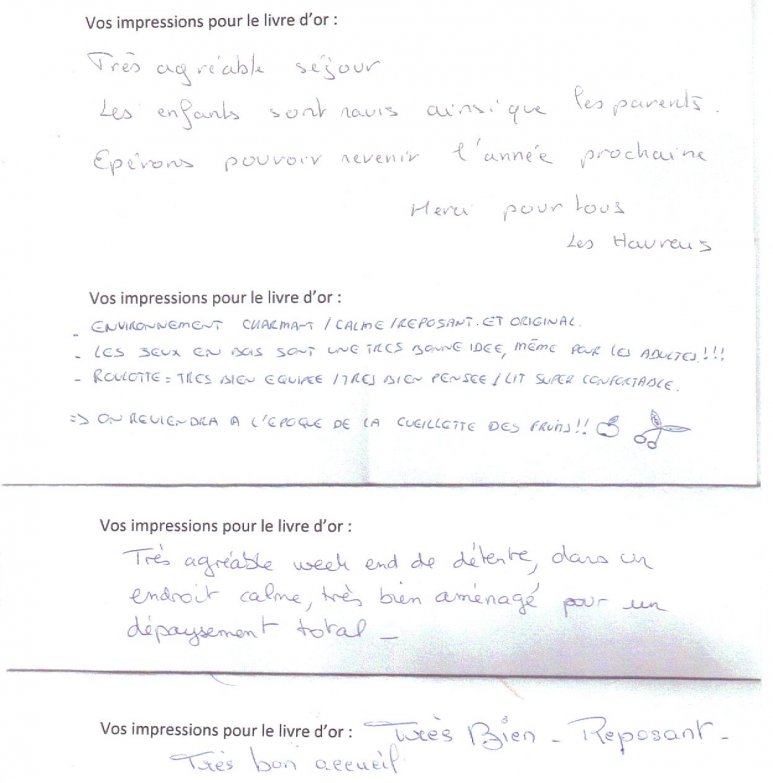 Vos impressions pour le livre d'or :
Très agréable séjour
Les enfants sont ravis ainsi que les parents.
Epérons pouvoir revenir l'année prochaine
Merci pour tous
Les Havreus
Vos impressions pour le livre d'or :
- ENVIRONNEMENT CHARMANT / CALME / REPOSANT. ET ORIGINAL.
- LES JEUX EN BOIS SONT UNE TRES BONNE IDEE, MÊME POUR LES ADULTES!!!
- ROULOTTE = TRES BIEN EQUIPEE / TRES BIEN PENSEE / LIT SUPER CONFORTABLE.
=> ON REVIENDRA A L'EPOQUE DE LA CUEILLETTE DES FRUITS!!
Vos impressions pour le livre d'or :
Très agréable week end de détente, dans un
endroit calme, très bien aménagé pour un
dépaysement total -
Vos impressions pour le livre d'or : Très Bien - Reposant -
Très bon accueil